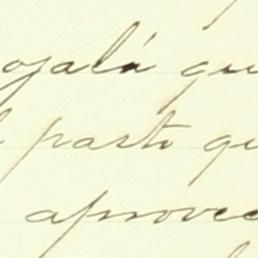 ojalá qu
pasto qu
aprovec